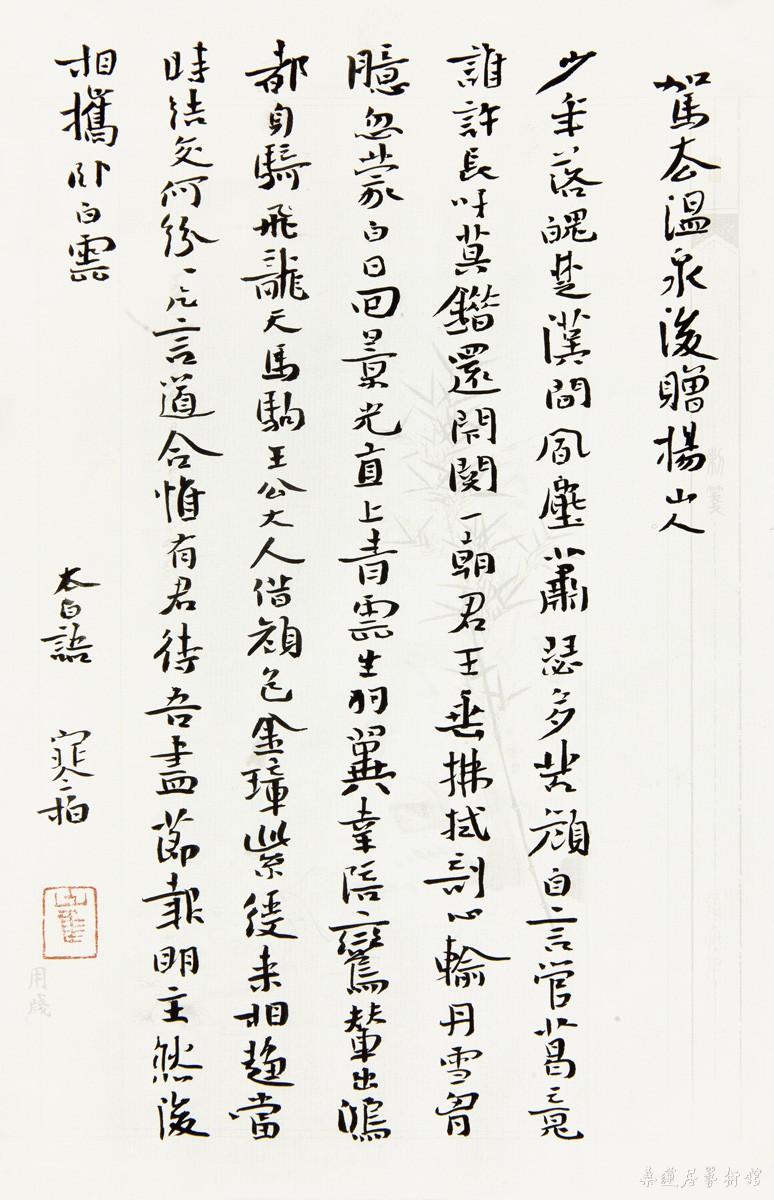 駕去溫泉後贈楊山人
少年落魄楚漢間風塵蕭瑟多苦顏自言管葛竟
誰許長吁莫錯還閉關一朝君王垂拂拭剖心輸丹雪胸
臆忽蒙白日回景光直上青雲生羽翼幸陪鸞輦出鴻
都身騎飛龍天馬駒王公大人借顏色金璋紫綬來相趨當
時結交何紛〻片言道合惟有君待吾盡節報明主然後
相攜臥白雲
太白語 寒柏
用牋
居藝術館